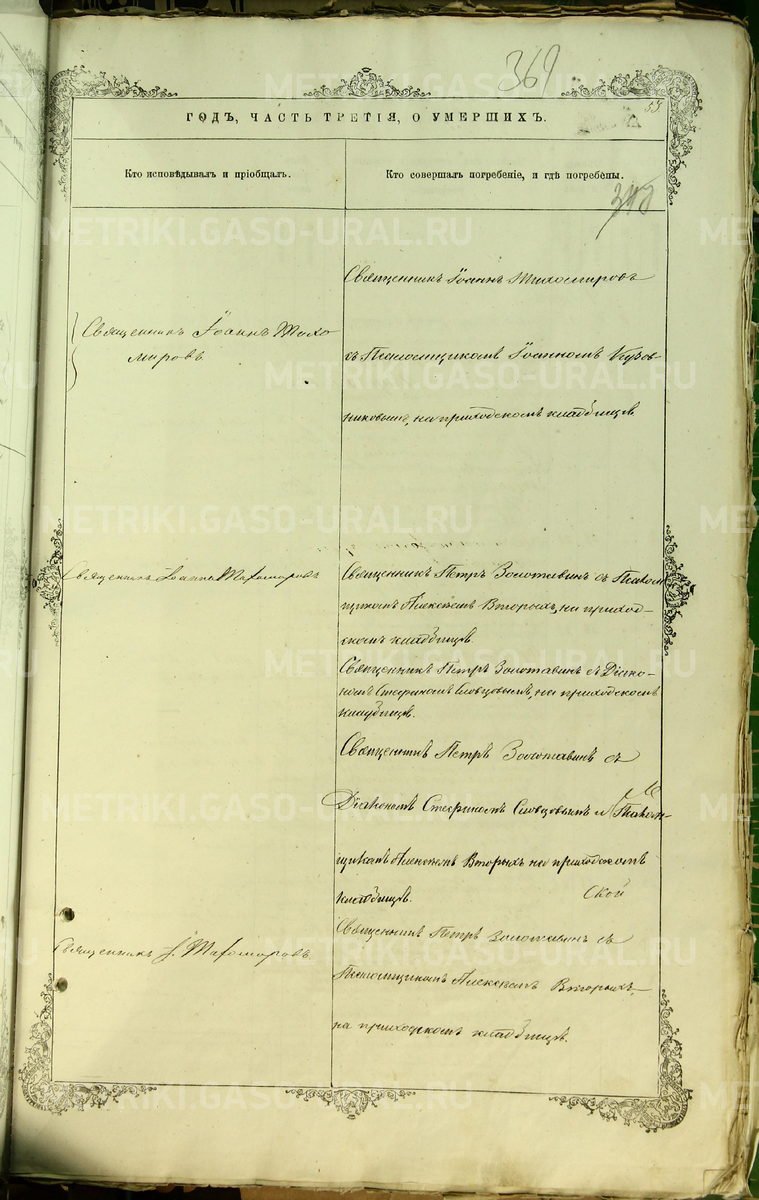 369
53
ГОДЪ, ЧАСТЬ ТРЕТІЯ, О УМЕРШИХЪ.
Кто исповѣдывалъ и пріобщалъ.
Кто совершалъ погребеніе, и гдѣ погребены.
METRIKI.GASO-URAL.RU
Священникъ Іоаннъ Тихо
мировъ.
Священникъ Іоаннъ Тихомировъ
съ Псаломщикомъ Іоанномъ
никовымъ, на приходскомъ кладбищѣ.
Священникъ Іоаннъ Тихомировъ
Священникъ Петръ Золотавинъ съ Псалом
щикомъ Алексѣемъ Вторыхъ, на приход-
скомъ кладбищѣ.
Священникъ Петръ Золотавинъ съ Діако-
номъ Стефаномъ Словцовымъ, на приходскомъ
кладбищѣ.
Священникъ Петръ Золотавинъ съ
Діакономъ Стефаномъ Словцовымъ и Псалом-
щикомъ Алексѣемъ Вторыхъ на приходскомъ
кладбищѣ.
Священникъ І. Тихомировъ.
Священникъ Петръ Золотавинъ съ
Псаломщикомъ Алексѣемъ Вторыхъ,
на приходскомъ кладбищѣ.